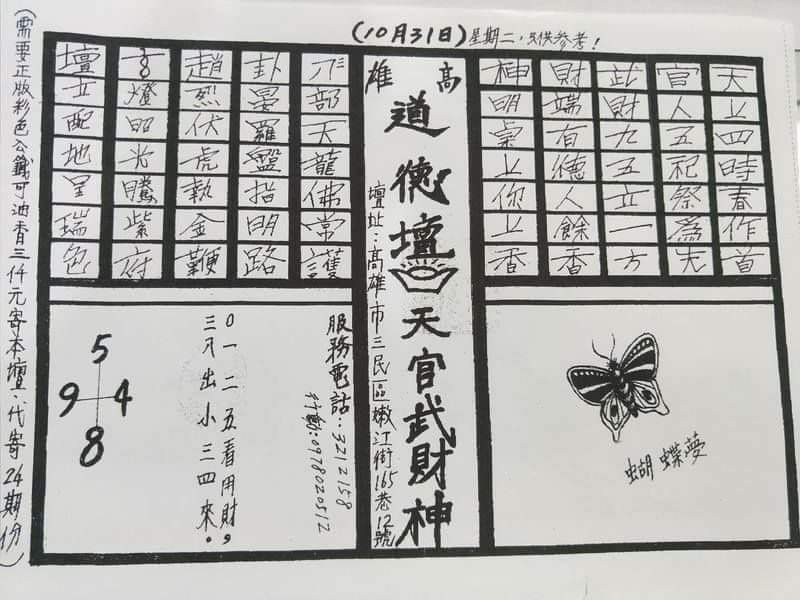 (10月31日)星期二,只供參考!
天上四時春作首
官人五祀祭為先
此財九五立一方
財端有德人餘香
神明桌上你上香
高雄
道德壇
天官武財神
壇址:高雄市三民區嫩江街165巷12號
部天龍佛常護
卦晏羅盤指明路
趙烈伏虎執金鞭
燈昭光騰紫府
壇立配地呈瑞色
蝴蝶夢
服務電話:3212158
行動:0978020512
0一二五看用財,
三入出小三四來。
5
9 4
8
(需要正版彩色公籤可油香三仟元寄本壇.代寄24期份)